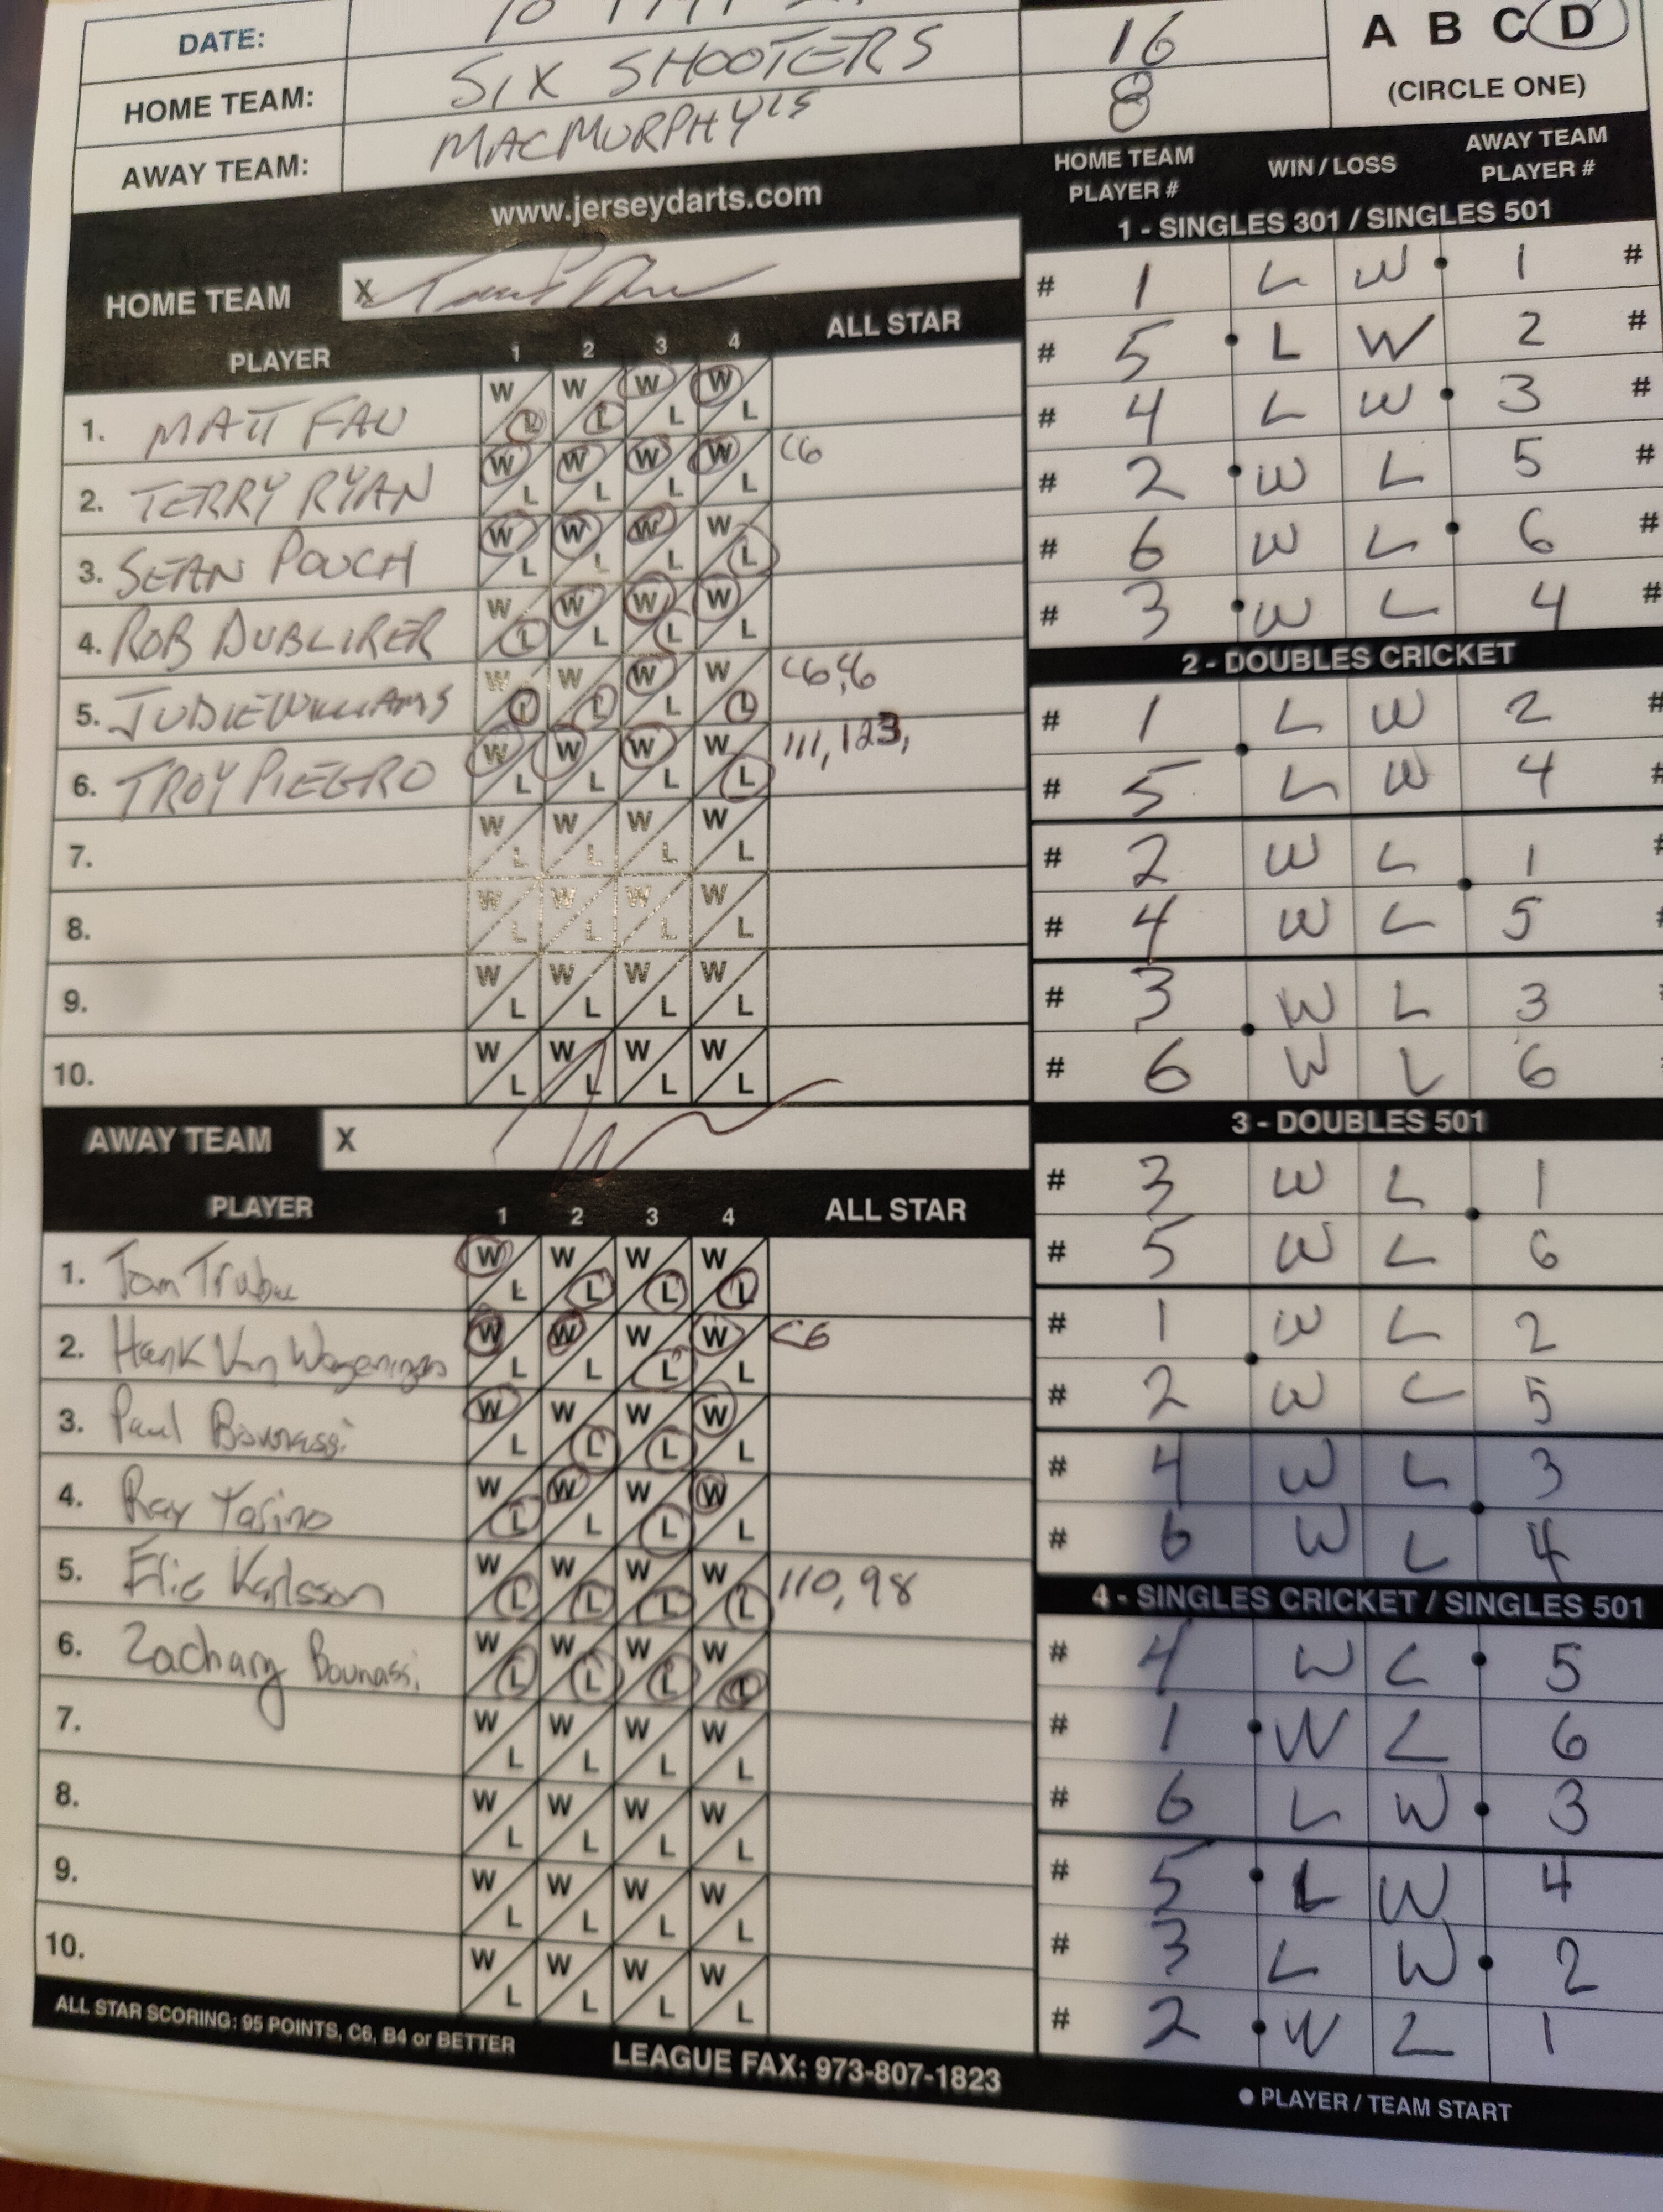 DATE:
HOME TEAM: SIX SHOOTERS 16
AWAY TEAM: MACMURPHY'S 8
A B C D
(CIRCLE ONE)
www.jerseydarts.com
HOME TEAM X
PLAYER 1 2 3 4 ALL STAR
1. MATT FAU W L W L W L W L
2. TERRY RYAN W L W L W L W L C6
3. SEAN POUCH W L W L W L W L
4. ROB DUBLIRER W L W L W L W L
5. JUDIE WILLIAMS W L W L W L W L C6,6
6. TROY PIEGRO W L W L W L W L 111, 123,
7. W L W L W L W L
8. W L W L W L W L
9. W L W L W L W L
10. W L W L W L W L
AWAY TEAM X
PLAYER 1 2 3 4 ALL STAR
1. Tom W L W L W L W L
2. Hank Van W L W L W L W L C6
3. Paul Bounassi W L W L W L W L
4. Ray W L W L W L W L
5. Eric Karlsson W L W L W L W L 110, 98
6. Zachary Bounassi W L W L W L W L
7. W L W L W L W L
8. W L W L W L W L
9. W L W L W L W L
10. W L W L W L W L
ALL STAR SCORING: 95 POINTS, C6, B4 or BETTER
LEAGUE FAX: 973-807-1823
HOME TEAM PLAYER # WIN / LOSS AWAY TEAM PLAYER #
1 - SINGLES 301 / SINGLES 501
# 1 L W 1 #
# 5 L W 2 #
# 4 L W 3 #
# 2 W L 5 #
# 6 W L 6 #
# 3 W L 4 #
2 - DOUBLES CRICKET
# 1 L W 2 #
# 5 L W 4 #
# 2 W L 1 #
# 4 W L 5 #
# 3 W L 3
# 6 W L 6
3 - DOUBLES 501
# 3 W L 1
# 5 W L 6
# 1 W L 2
# 2 W L 5
# 4 W L 3
# 6 W L 4
4 - SINGLES CRICKET / SINGLES 501
# 4 W L 5
# 1 W L 6
# 6 L W 3
# 5 L W 4
# 3 L W 2
# 2 W L 1
● PLAYER / TEAM START